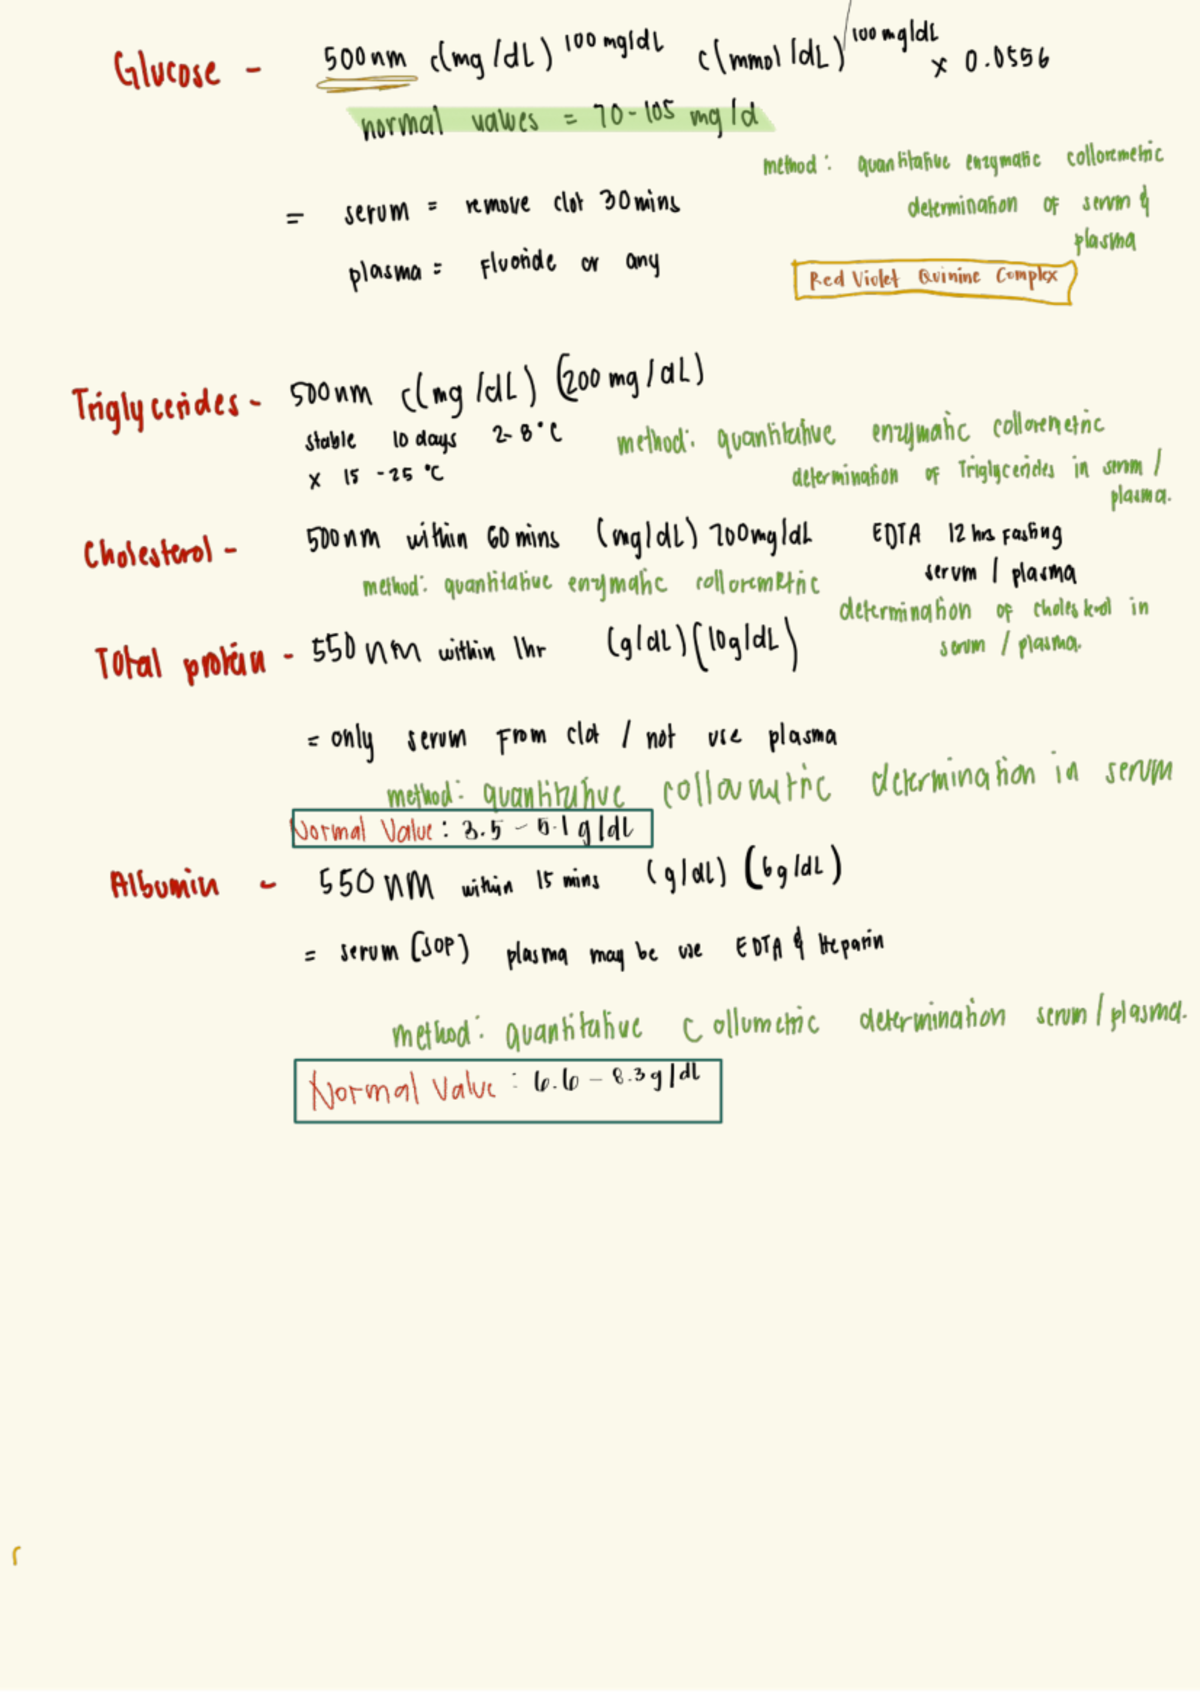 Glucose - 500nm c(mg/dL) 100 mg/dL c(mmol/dL) 100 mg/dL x 0.0556
normal values = 70-105 mg/d
method: quantitative enzymatic colloremetric
= serum = remove clot 30mins
determination of serum &
plasma
plasma = Fluoride or any
Red Violet Quinine Complex
Triglycerides - 500nm c(mg/dL) (200 mg/dL)
stable 10 days 2-8°C
method: quantitative enzymatic colloremetric
x 15 -25 °C
determination of Triglycerides in serum /
plasma.
Cholesterol - 500nm within 60mins (mg/dL) 200mg/dL EDTA 12 hrs Fasting
serum / plasma
method: quantitative enzymatic colloremetric
determination of cholesterol in
serum / plasma.
Total protein - 550nm within 1hr (g/dL) (10g/dL)
= only serum From clot / not use plasma
method: quantitative collorumetric determination in serum
Normal Value: 3.5 - 5.1 g/dL
Albumin - 550nm within 15 mins (g/dL) (6g/dL)
= serum (SOP) plasma may be use EDTA & Heparin
method: quantitative collumetric determination serum/plasma.
Normal Value : 6.6 - 8.3g/dL